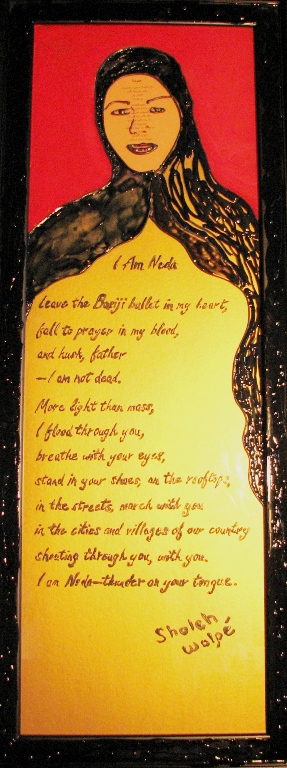 I Am Neda
Leave the Basiji bullet in my heart,
fall to prayer in my blood,
and hush, father
—I am not dead.
More light than mass,
I flood through you,
breathe with your eyes,
stand in your shoes, on the rooftops,
in the streets, march with you
in the cities and villages of our country
shouting through you, with you.
I am Neda—thunder on your tongue.
Sholeh
Wolpé